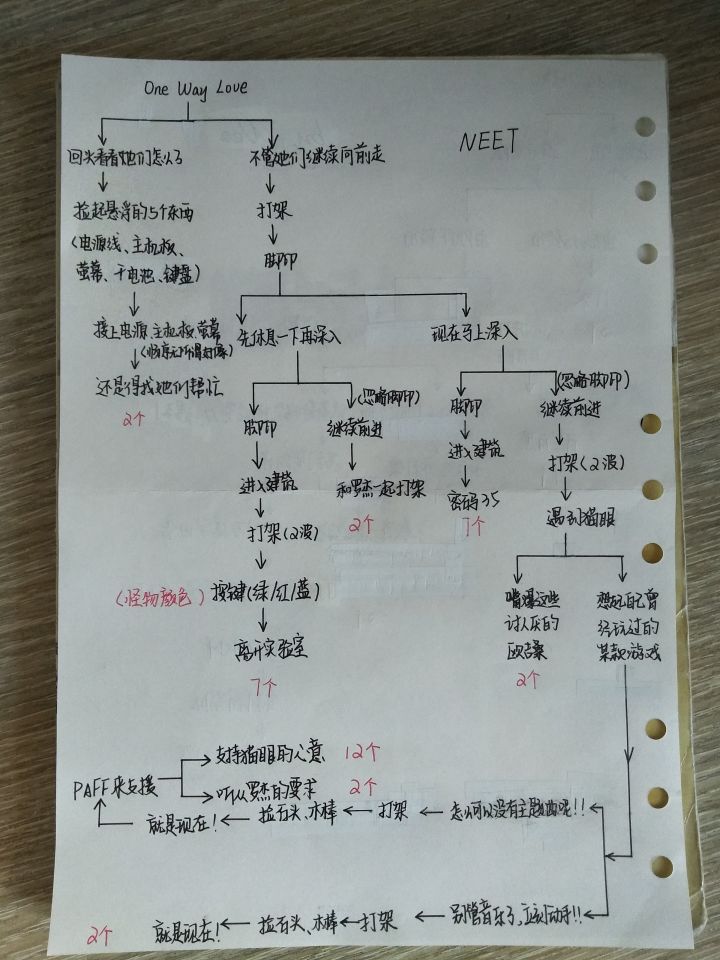 One Way Love
NEET
回头看看她们怎么了
不管她们继续向前走
捡起悬浮的5个东西
(电源线、主机板、
萤幕、干电池、键盘)
打架
脚印
接上电源、主机板、萤幕
(顺序无所谓好像)
还是得找她们帮忙
2个
先休息一下再深入
现在马上深入
脚印
(忽略脚印)
继续前进
脚印
(忽略脚印)
继续前进
进入建筑
和罗杰一起打架
2个
进入建筑
打架(2波)
打架(2波)
密码35
7个
遇到猫眼
(怪物颜色)
按键(绿/红/蓝)
离开实验室
7个
嘴爆这些
讨人厌的
欧吉桑
2个
想起自己曾
经玩过的
某款游戏
支持猫眼的心意 12个
PAFF来支援
听从罗杰的要求 2个
就是现在! 捡石头、木棒 打架 怎么可以没有主题曲呢!!
2个 就是现在! 捡石头、木棒 打架 别管音乐了,立刻动手!!